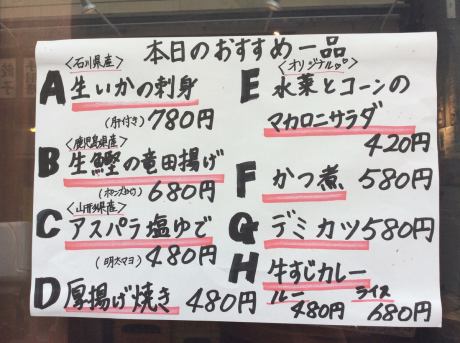 本日のおすすめ一品
<石川県産>
A 生いかの刺身
(肝付き) 780円
<鹿児島県産>
B 生鰹の竜田揚げ
(ポン酢) 680円
<山形県産>
C アスパラ塩ゆで
(明太マヨ) 480円
D 厚揚げ焼き 480円
<オリジナル♡♡>
E 水菜とコーンの
マカロニサラダ
420円
F かつ煮 580円
G デミカツ 580円
H 牛すじカレー
ルー 480円 ライス 680円